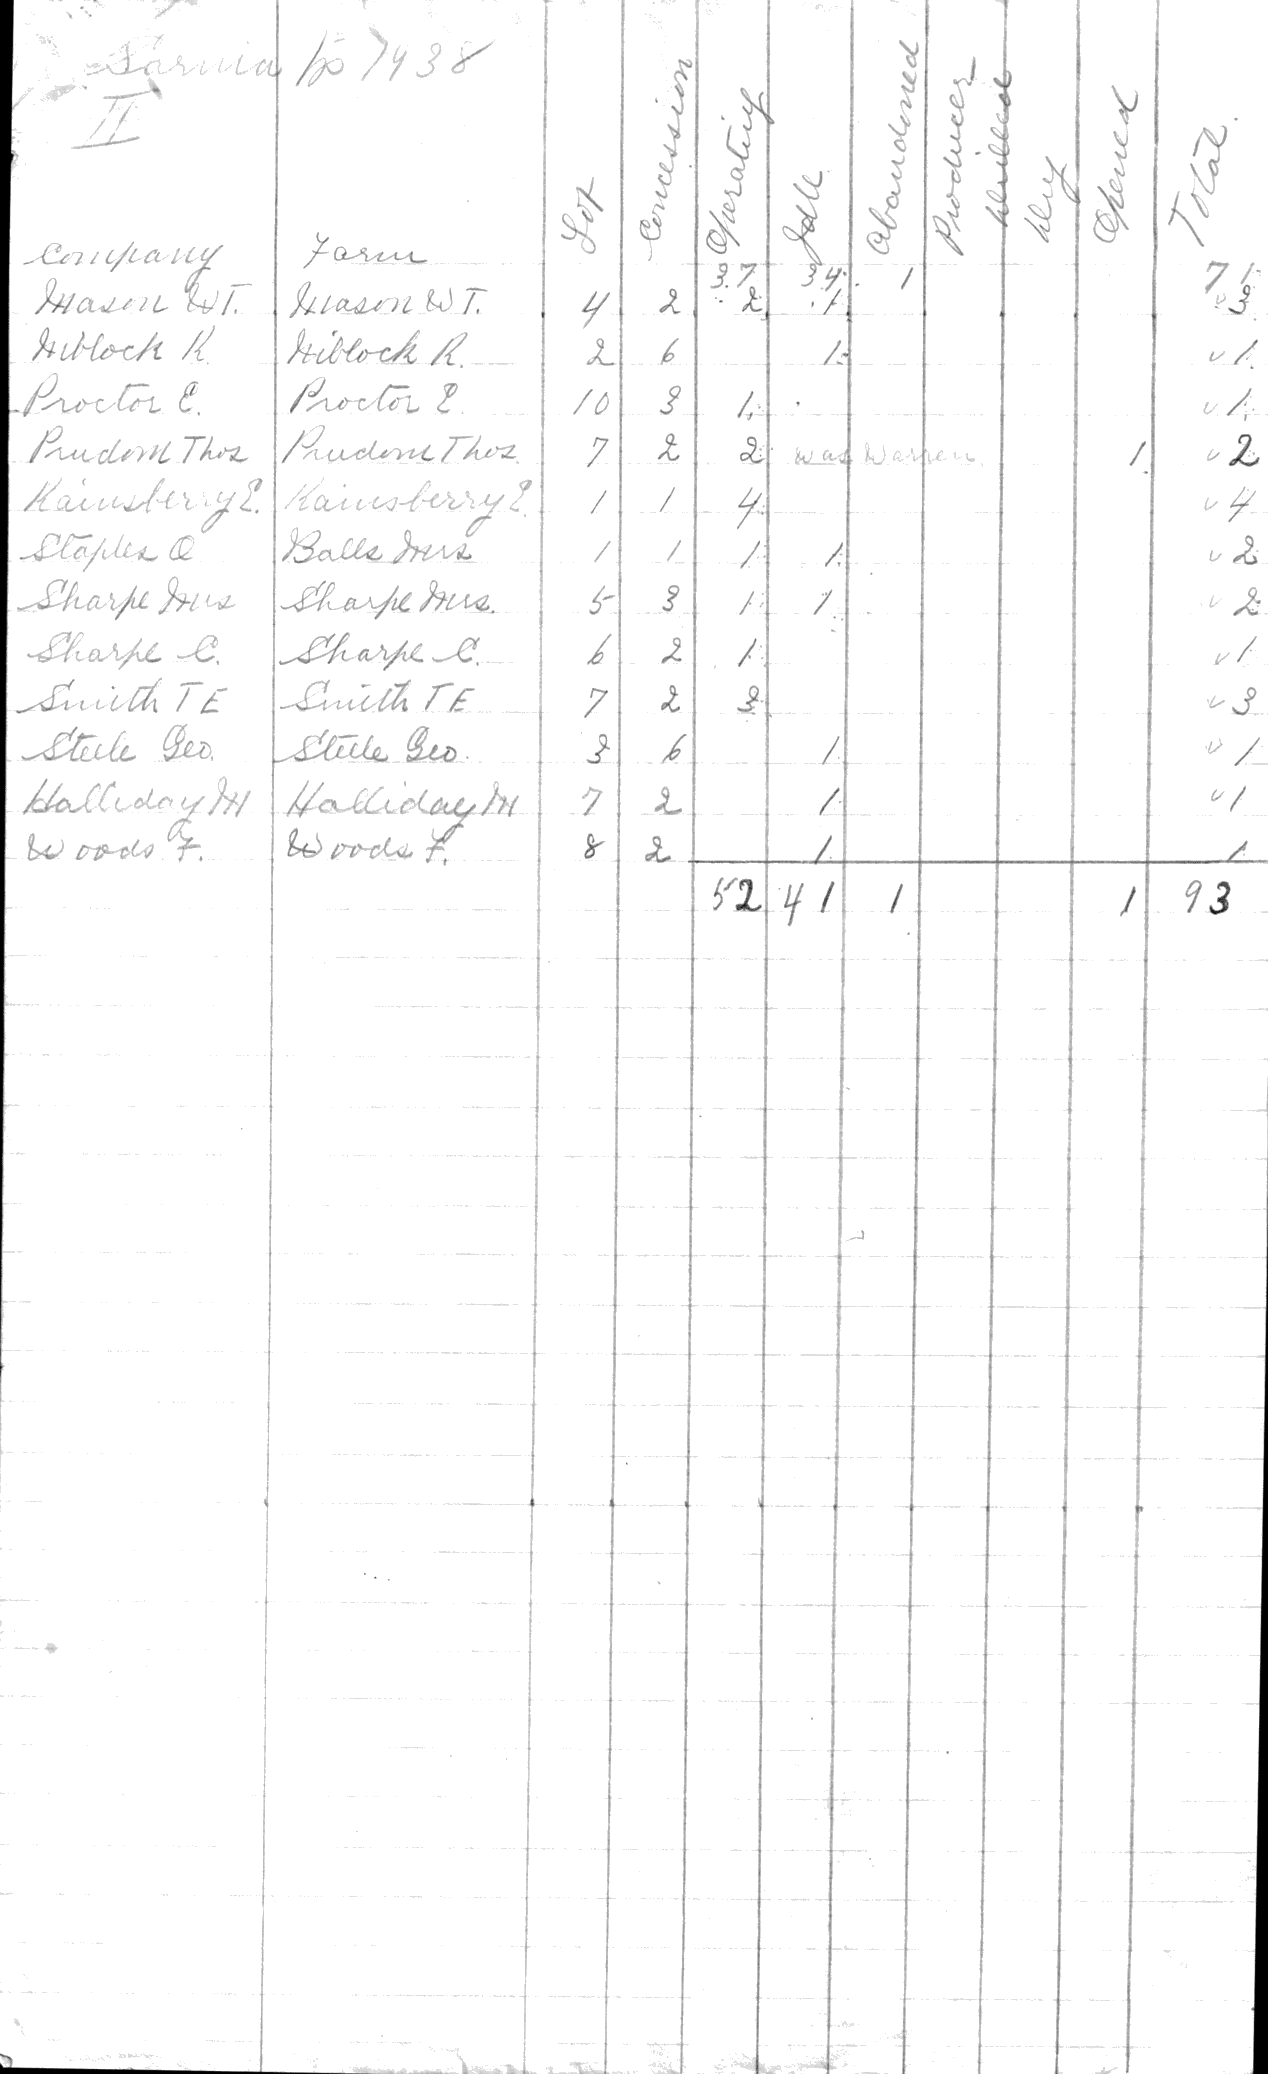 Sarnia Tp 1938
II
Company Farm Lot Concession Operating Idle Abandoned Producer Drilled Dry Opened Total
37 34 1 71
Mason W T. Mason W T. 4 2 2 1 3
Niblock R. Niblock R. 2 6 1 1
Proctor E. Proctor E. 10 3 1 1
Prudom Thos Prudom Thos. 7 2 2 was Warren 1 2
Rainsberry E. Rainsberry E. 1 1 4 4
Staples O Balls Mrs 1 1 1 1 2
Sharpe Mrs Sharpe Mrs. 5 3 1 1 2
Sharpe C. Sharpe C. 6 2 1 1
Smith T E Smith T E 7 2 3 3
Steele Geo. Steele Geo. 3 6 1 1
Halliday M Halliday M 7 2 1 1
Woods F. Woods F. 8 2 1 1
52 41 1 1 93